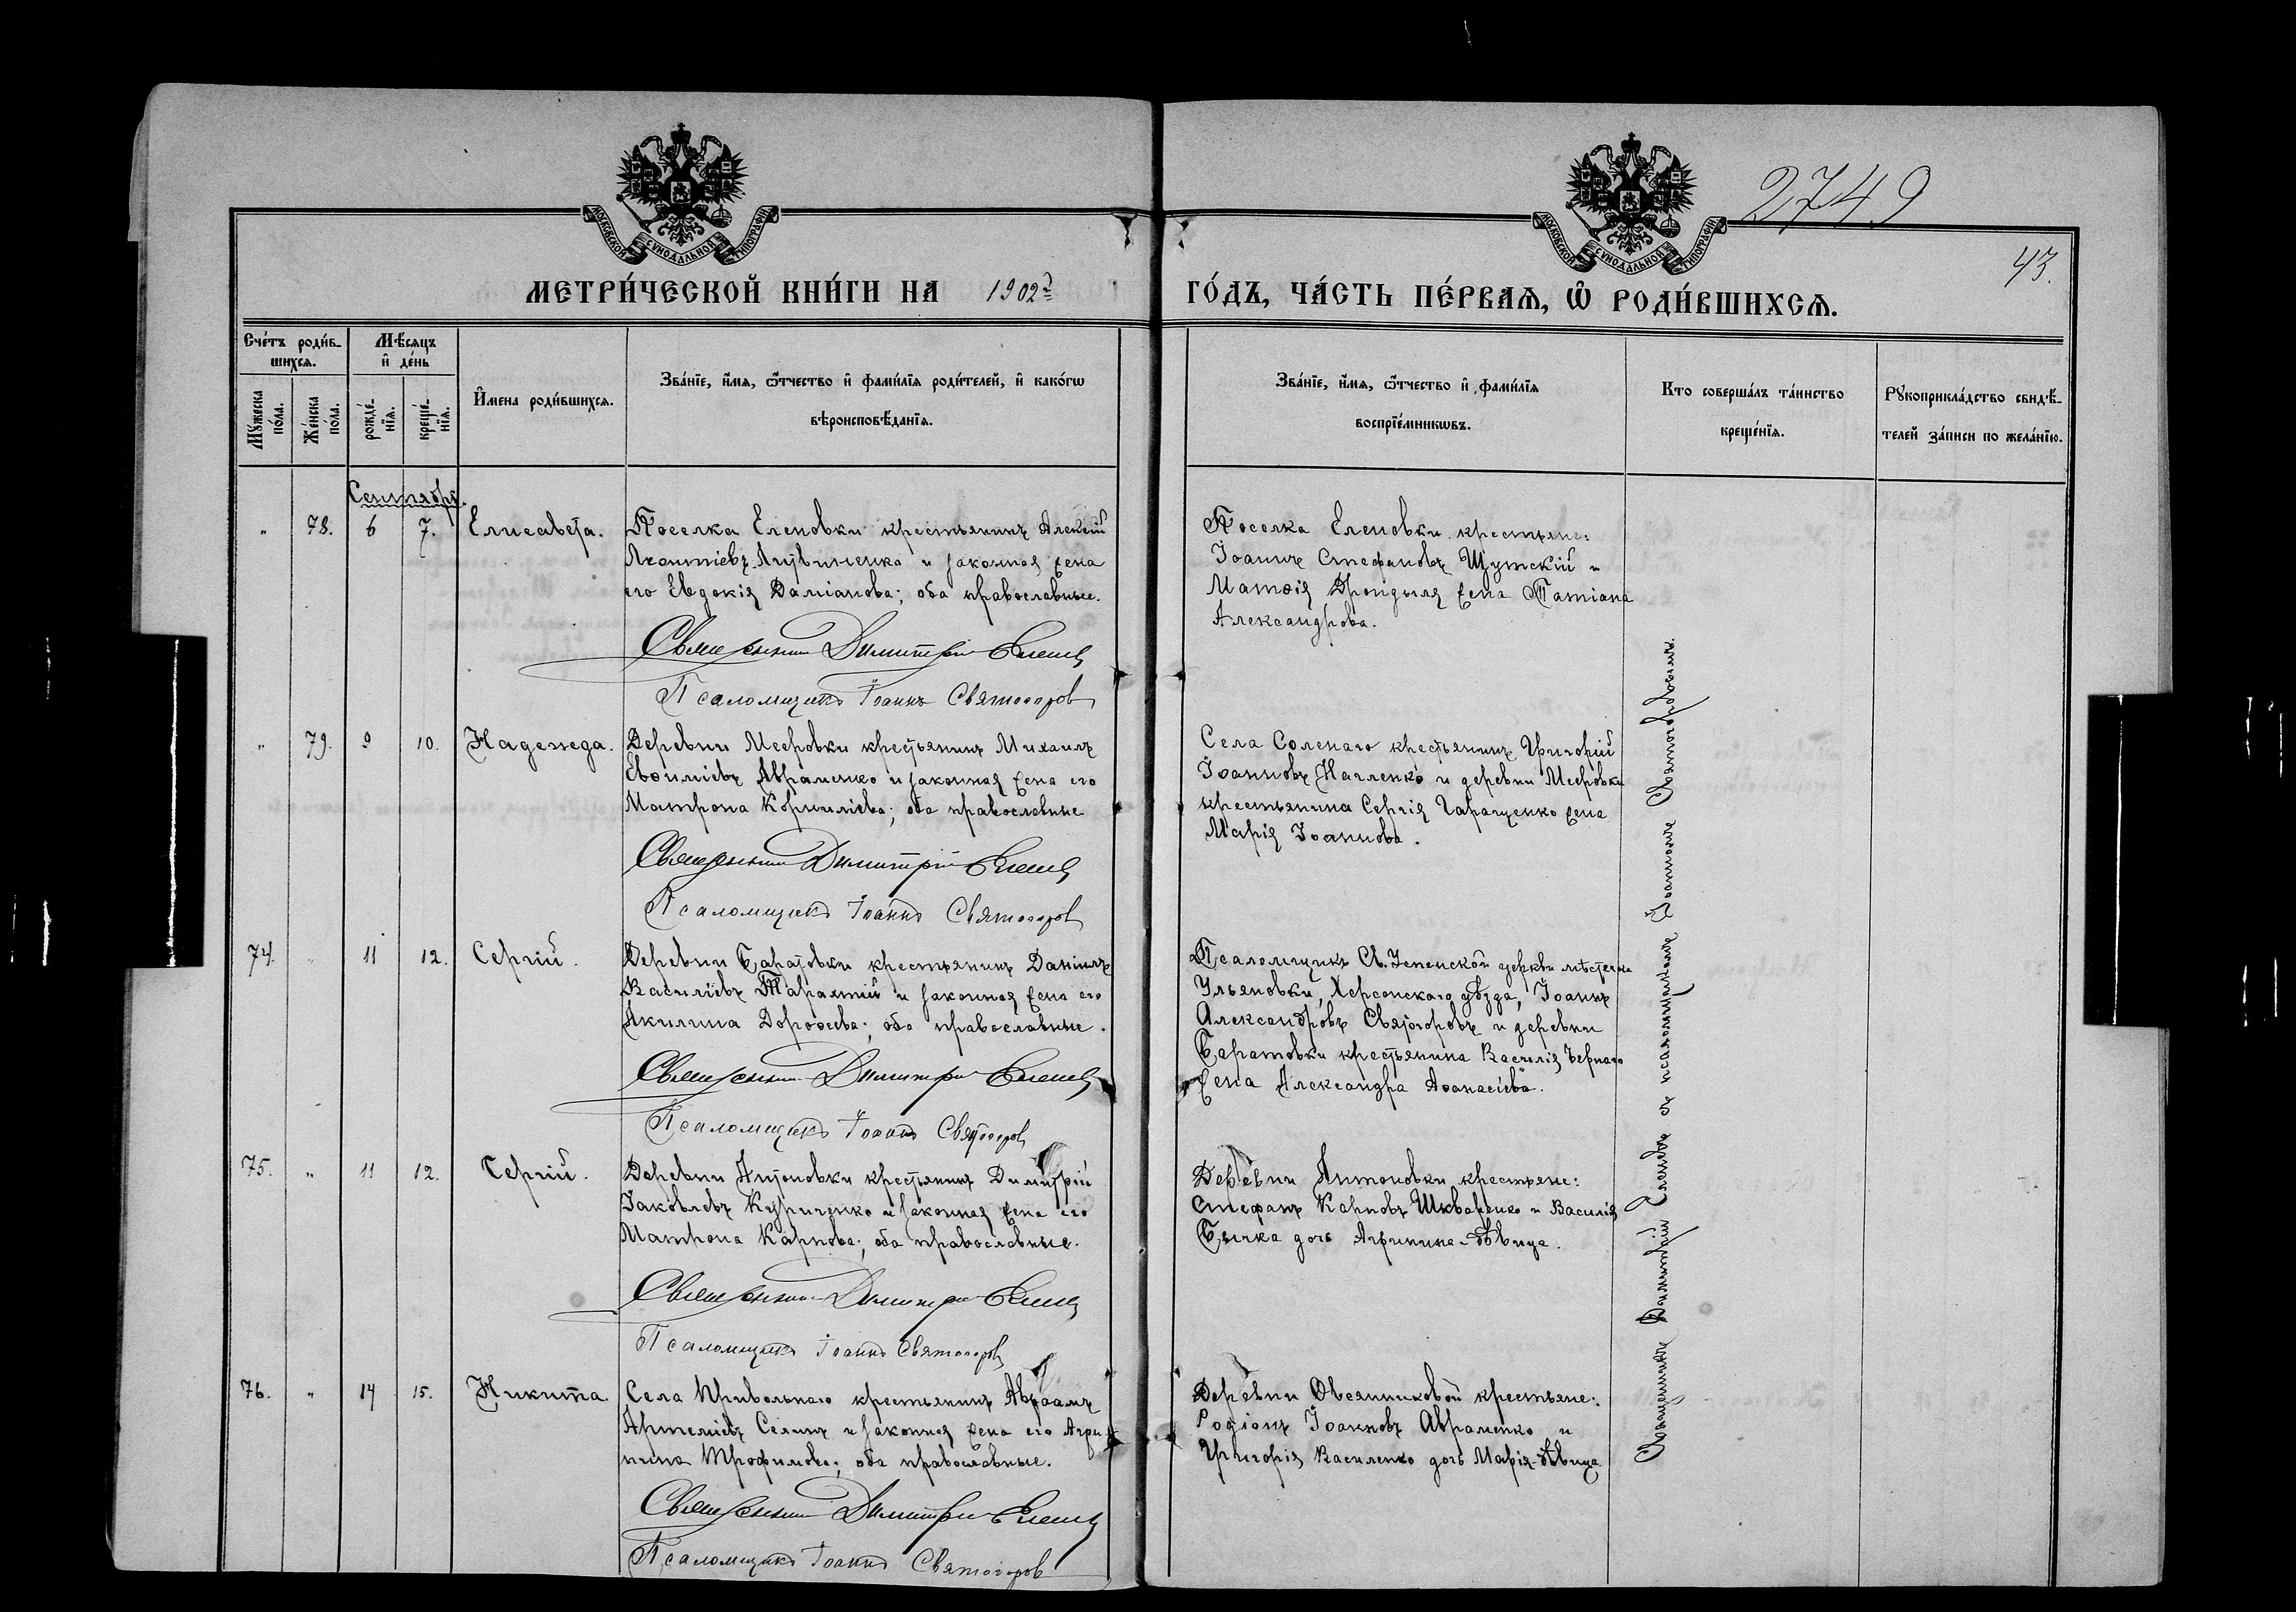 МОСКОВСКОЙ СУНОДАЛЬНОЙ ТИПОГРАФІИ
МОСКОВСКОЙ СУНОДАЛЬНОЙ ТИПОГРАФІИ
2749
43.
МЕТРИ́ЧЕСКОЙ КНИ́ГИ НА 1902й
ГО́ДЪ, ЧА́СТЬ ПЕ́РВАѦ, Ѡ҆ РОДИ́ВШИХСѦ.
Сче́тъ роди́в-
шихсѧ.
Мѣ́сѧцъ
и҆ де́нь
Мꙋ́жеска
по́ла.
Же́нска
по́ла.
рожде́-
нїѧ.
креще́-
нїѧ.
И҆мена роди́вшихсѧ.
Зва́нїе, и҆́мѧ, ѻ҆́тчество и҆ фами́лїѧ роди́телей, и҆ како́гѡ
вѣроисповѣ́данїѧ.
Зва́нїе, и҆́мѧ, ѻ҆́тчество и҆ фами́лїѧ
воспрїе́мникѡвъ.
Кто соверша́лъ та́инство
креще́нїѧ.
Рꙋкоприкла́дство свидѣ́-
телей за́писи по жела́нїю.
Сентябрь.
" 78. 6 7. Елисавета.
Поселка Еленовки крестьянинъ Алексій
Леонтіевъ Литвиненко и законная жена
его Евдокія Даміанова; оба православные.
Священникъ Димитрій Еленевъ
Псаломщикъ Іоаннъ Святогоровъ
Поселка Еленовки крестьяне:
Іоаннъ Стефановъ Щутскій и
Матѳія Дрондыля жена Татіана
Александрова.
" 79. 9 10. Надежда.
Деревни Мееровки крестьянинъ Михаилъ
Евѳиміевъ Авраменко и законная жена его
Матрона Корниліева; оба православные
Священникъ Димитрій Еленевъ
Псаломщикъ Іоаннъ Святогоровъ
Села Соленаго крестьянинъ Григорій
Іоанновъ Нагленко и деревни Мееровки
крестьянина Сергія Геращенко жена
Марія Іоаннова.
74. " 11 12. Сергій.
Деревни Баратовки крестьянинъ Даніилъ
Василіевъ Тарахтій и законная жена его
Акилина Дороѳеева; оба православные.
Священникъ Димитрій Еленевъ
Псаломщикъ Іоаннъ Святогоровъ
Псаломщикъ Св. Успенской церкви мѣстечка
Ульяновки, Херсонскаго уѣзда, Іоаннъ
Александровъ Святогоровъ и деревни
Баратовки крестьянина Василія Чернаго
жена Александра Аѳанасіева.
75. " 11 12. Сергій.
Деревни Антоновки крестьянинъ Димитрій
Іаковлевъ Куриченко и законная жена его
Матрона Карпова; оба православные.
Священникъ Димитрій Еленевъ
Псаломщикъ Іоаннъ Святогоровъ
Деревни Антоновки крестьяне:
Стефанъ Карповъ Шкваренко и Василія
Бычка дочь Агрипина-дѣвица.
76. " 14 15. Никита.
Села Привольнаго крестьянинъ Авраамъ
Артеміевъ Селинъ и законная жена его Агри-
пина Трофимова; оба православные.
Священникъ Димитрій Еленевъ
Псаломщикъ Іоаннъ Святогоровъ
Деревни Овсянниковой крестьяне:
Родіонъ Іоанновъ Авраменко и
Григорія Василенко дочь Марія-дѣвица.
Священникъ Димитрій Еленевъ съ псаломщикомъ Іоанномъ Святогоровымъ.